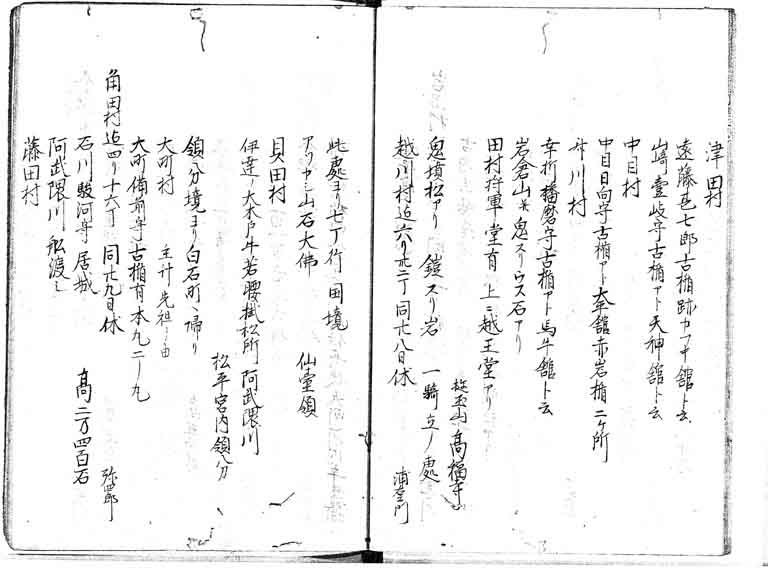 津田村
遠藤 七郎古楯跡カフキ舘ト云
山崎壹岐守古楯アト天神舘ト云
中目村
中目日向守古楯アト 舘赤岩楯二ケ所
川村
幸折播磨守古楯アト馬牛舘ト云
岩倉山 鬼スリウス石アリ
田村将軍ノ堂有 上ニ越王堂アリ
山高福寺
鬼墳松アリ 鎧スリ岩 一騎立ノ處
越川村迠六リ廿二丁同廿八日休
此處ヨリ七丁行 国境
アツカシ山石大佛 仙臺領
貝田村
伊達ノ大木戸牛若腰掛松所阿武隈川
松平宮内領分
領分境ヨリ白石町ヘ帰リ
大町村 主計先祖ノ由
大町備前守古楯有本丸二ノ丸
角田村迠四リ十六丁 同廿九日休
石川駿河守居城 高二万四百石
阿武隈川舩渡シ
藤田村